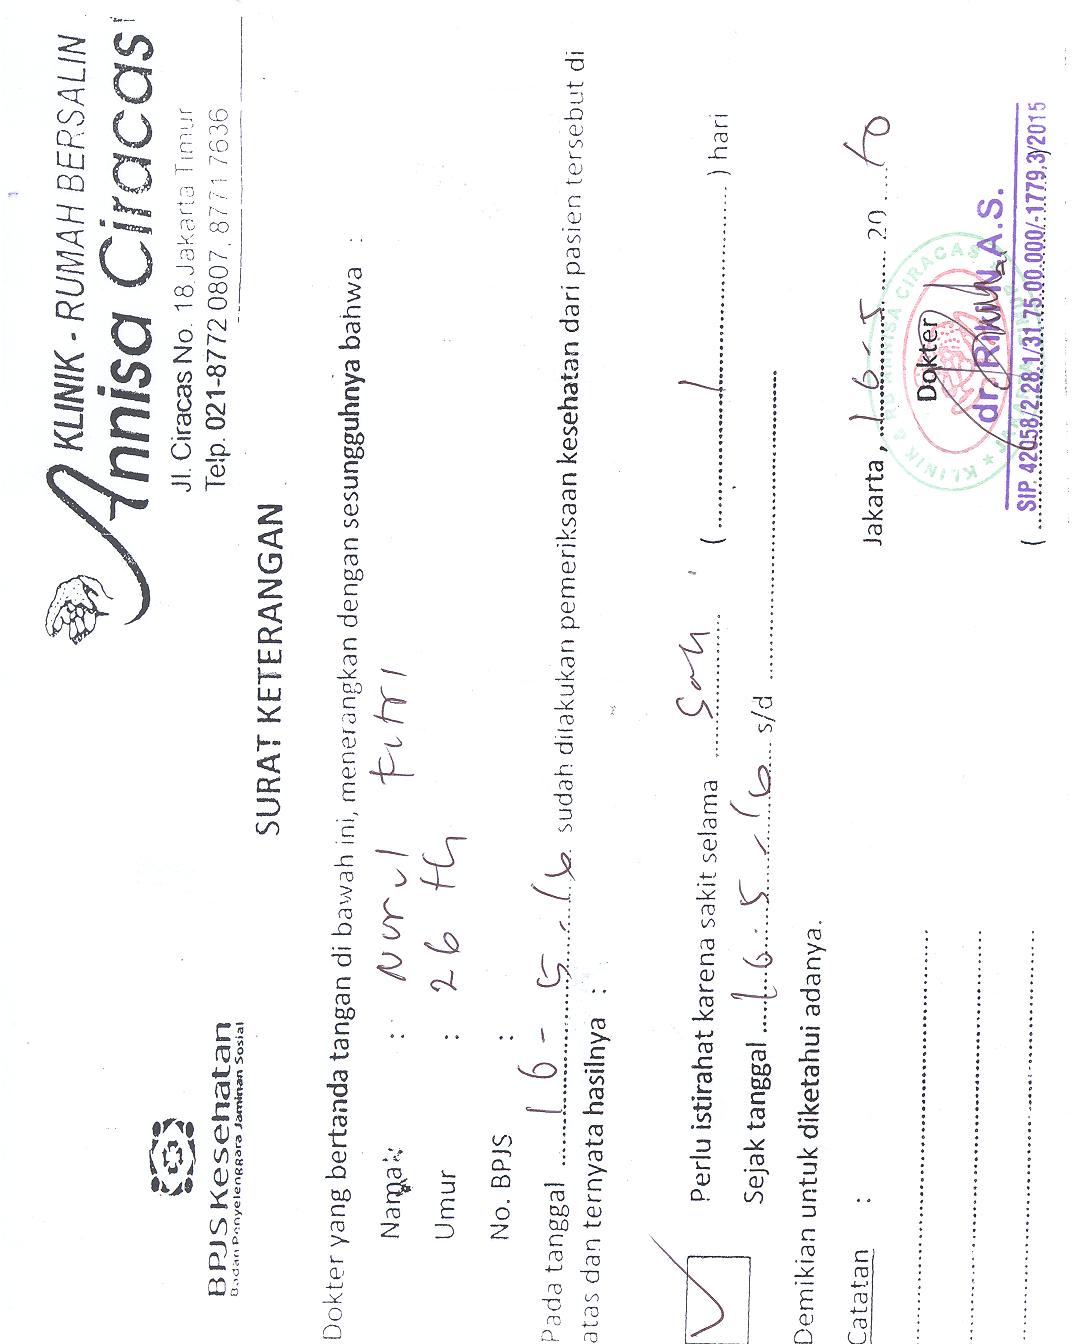 BPJS Kesehatan
Badan Penyelenggara Jaminan Sosial
KLINIK - RUMAH BERSALIN
Annisa Ciracas
Jl. Ciracas No. 18 Jakarta Timur
Telp. 021-8772 0807, 8771 7636
SURAT KETERANGAN
Dokter yang bertanda tangan di bawah ini, menerangkan dengan sesungguhnya bahwa :
Nama : Nurul Fitri
Umur : 26 th
No. BPJS :
Pada tanggal 16 - 5 - 16 sudah dilakukan pemeriksaan kesehatan dari pasien tersebut di
atas dan ternyata hasilnya :
Perlu istirahat karena sakit selama ( 1 ) hari
Sejak tanggal 16 - 5 - 16 s/d
Demikian untuk diketahui adanya.
Catatan :
Jakarta, 16 - 5 20
Dokter
KLINIK & RB ANNISA CIRACAS
dr. Riki N A.S.
SIP. 42058/2.28.1/31.75.00.000/-1779.3/2015